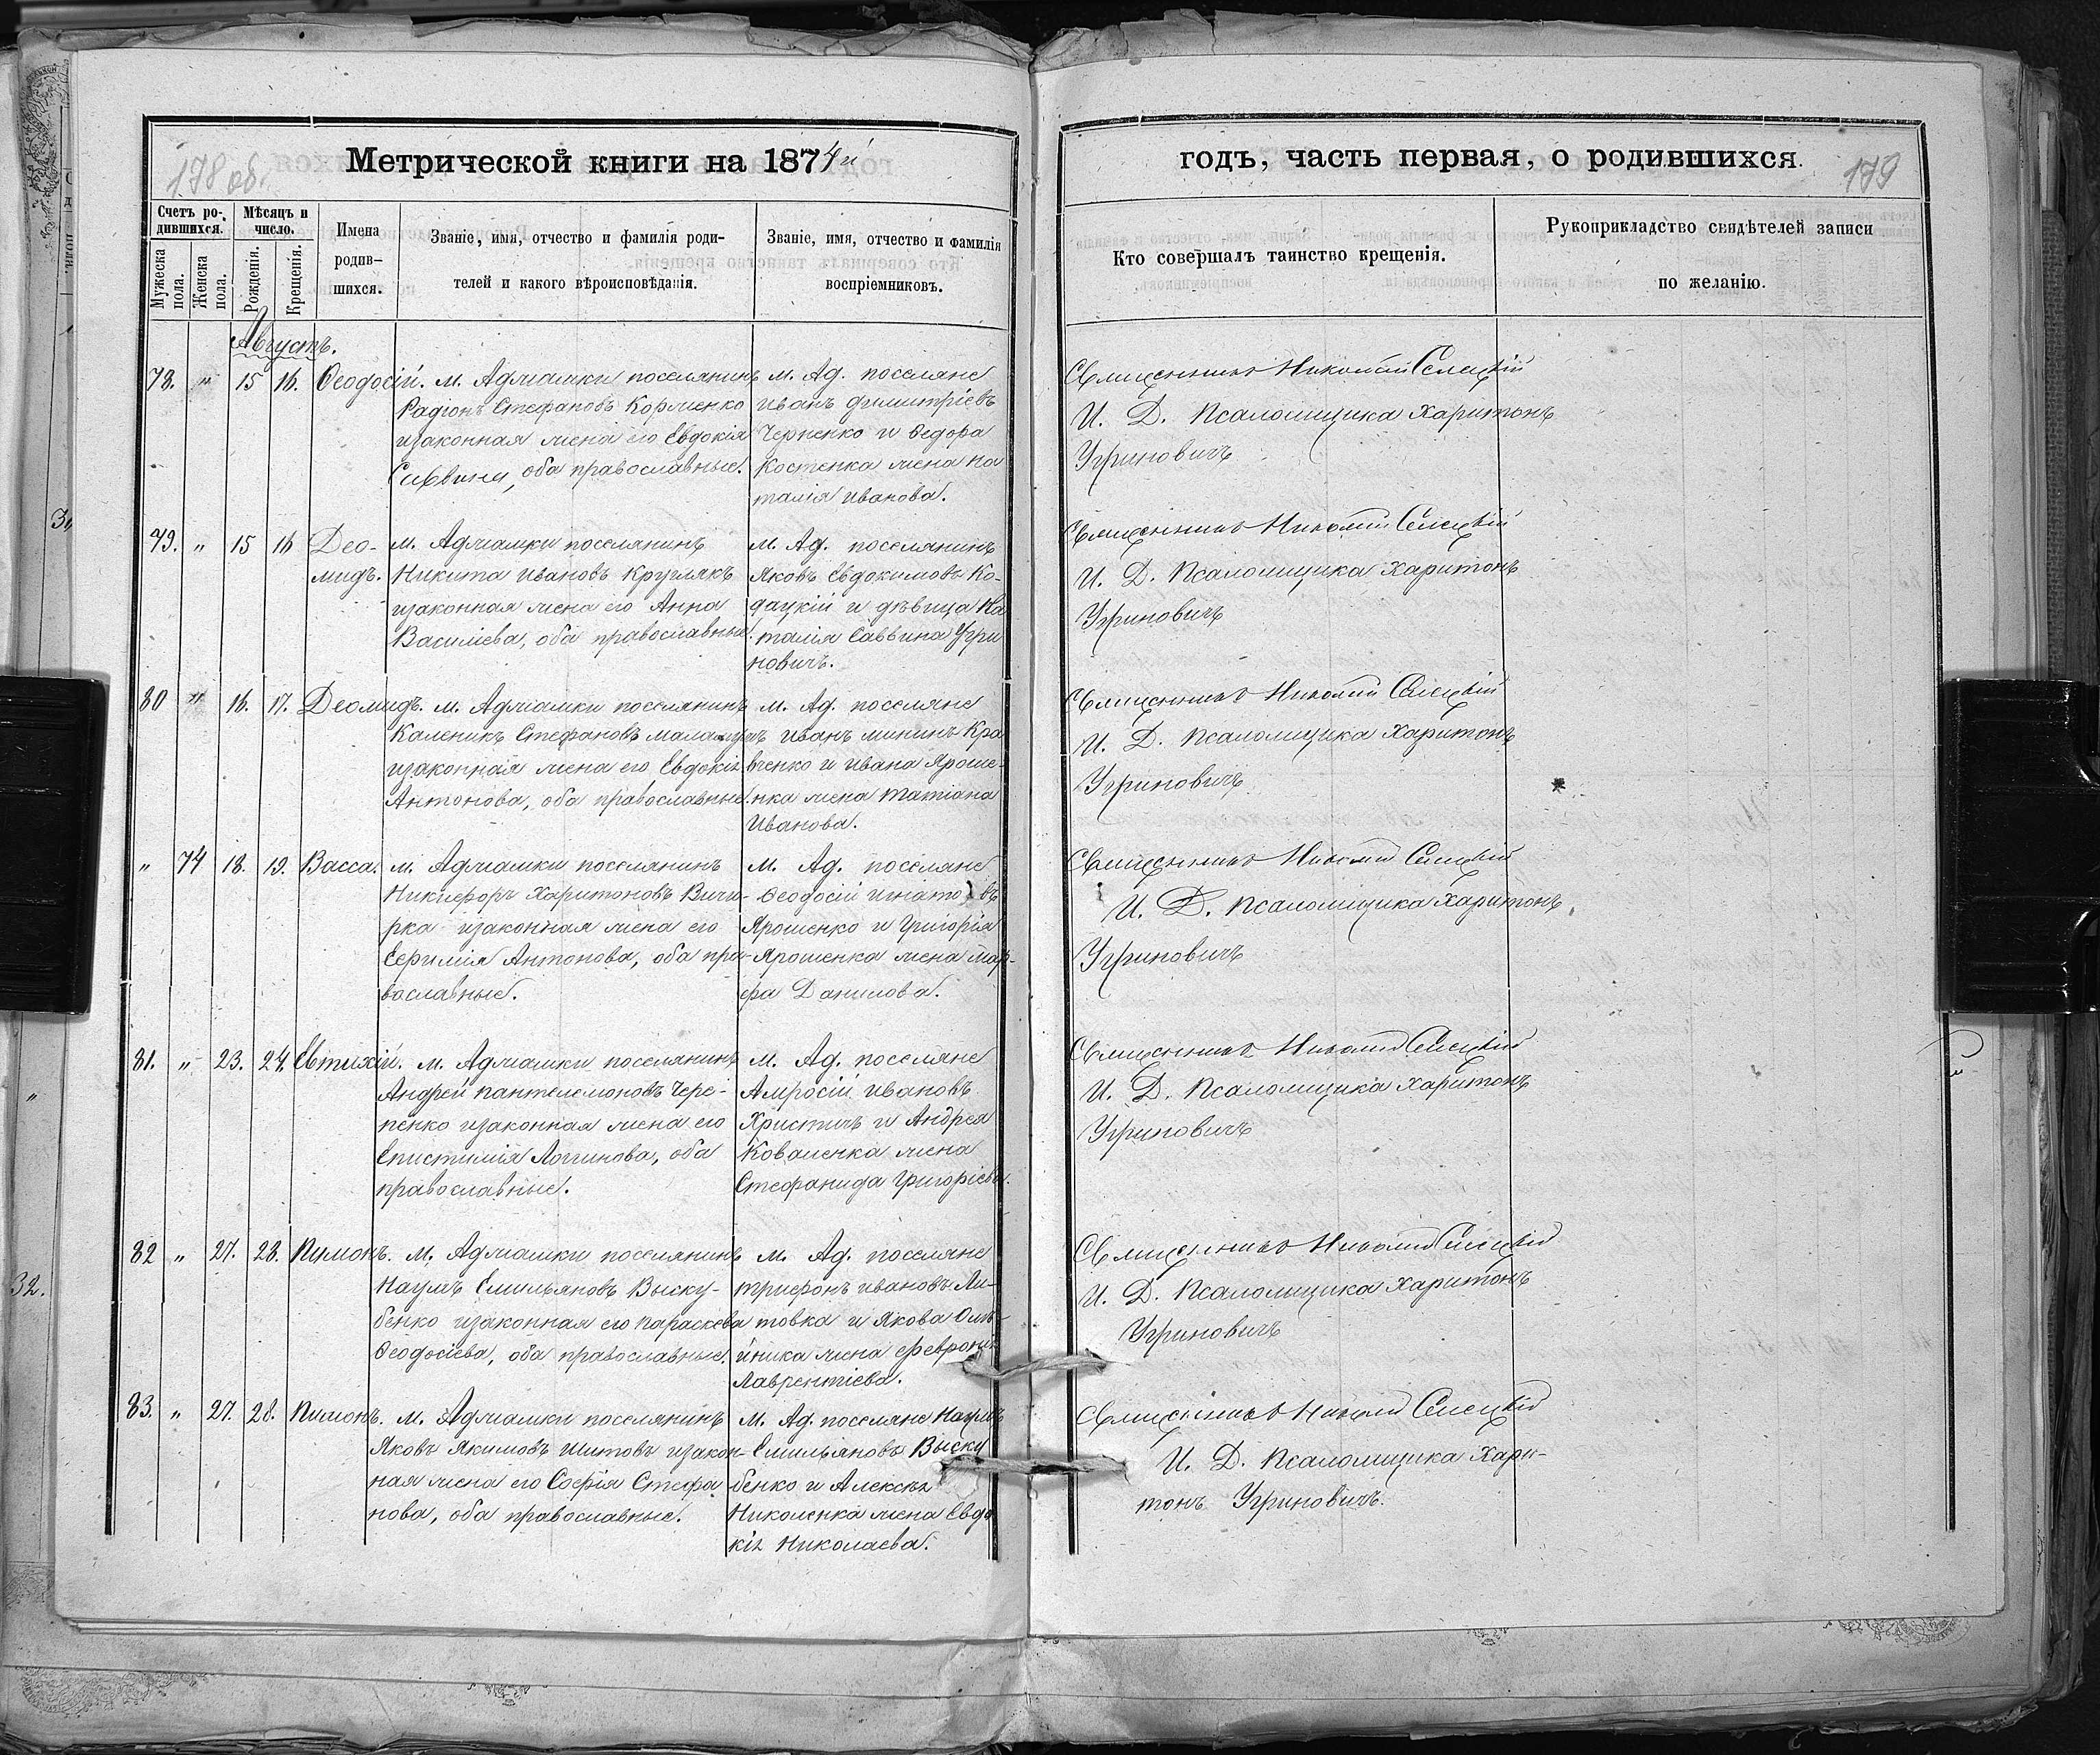 178 об.
Метрической книги на 1874й
годъ, часть первая, о родившихся.
179
Счетъ ро-
дившихся.
Мужеска пола.
Женска пола.
Мѣсяцъ и
число.
Рожденія.
Крещенія.
Имена
родив-
шихся.
Званіе, имя, отчество и фамилія роди-
телей и какого вѣроисповѣданія.
Званіе, имя, отчество и фамилія
воспріемниковъ.
Кто совершалъ таинство крещенія.
Рукоприкладство свидѣтелей записи
по желанію.
Августъ.
78. " 15 16. Ѳеодосій.
м. Адмамки поселянинъ
Радіонъ Стефановъ Корменко
изаконная жена его Евдокія
Саввина, оба православные.
м. Ад. поселяне
Иванъ Димитріевъ
Черненко и Ѳедора
Костенка жена На
талія Иванова.
Священникъ Николай Селецкій
И. Д. Псаломщика Харитонъ
Угриновичъ
79. " 15 16 Део-
мидъ.
м. Адмамки поселянинъ
Никита Ивановъ Круглякъ
изаконная жена его Анна
Василіева, оба православные.
м. Ад. поселянинъ
Яковъ Евдокимовъ Ко-
дацкій и дѣвица На
талія Саввина Угри
новичъ.
Священникъ Николай Селецкій
И. Д. Псаломщика Харитонъ
Угриновичъ
80 " 16. 17. Деомидъ.
м. Адмамки поселянинъ
Каленикъ Стефановъ
изаконная жена его Евдокія
Антонова, оба православные.
м. Ад. поселяне
Иванъ Мининъ Кра
вченко и Ивана Яроше-
нка жена Татіана
Иванова.
Священникъ Николай Селецкій
И. Д. Псаломщика Харитонъ
Угриновичъ
" 74 18. 19. Васса.
м. Адмамки поселянинъ
Никифоръ Харитоновъ Вичи-
рка изаконная жена его
Евфимія Антонова, оба пра-
вославные.
м. Ад. поселяне
Ѳеодосій Игнатовъ
Ярошенко и Григорія
Ярошенка жена Мар-
фа Данилова.
Священникъ Николай Селецкій
И. Д. Псаломщика Харитонъ
Угриновичъ
81. " 23. 24. Евтихій.
м. Адмамки поселянинъ
Андрей Пантелемоновъ Чере-
пенко изаконная жена его
Епистимія Логгинова, оба
православные.
м. Ад. поселяне
Амросій Ивановъ
Христичъ и Андрея
Коваленка жена
Стефанида Григоріева.
Священникъ Николай Селецкій
И. Д. Псаломщика Харитонъ
Угриновичъ
82 " 27. 28. Пимонъ.
м. Адмамки поселянинъ
Наумъ Емильяновъ Выску-
бенко изаконная его Параскева
Ѳеодосіева, оба православные.
м. Ад. поселяне
Трифонъ Ивановъ Ли-
товка и Якова Олѣ-
йника жена Феврония
Лаврентіева.
Священникъ Николай Селецкій
И. Д. Псаломщика Харитонъ
Угриновичъ
83. " 27. 28. Пимонъ.
м. Адмамки поселянинъ
Яковъ Якимовъ Шитовъ изакон-
ная жена его Софія Стефа
нова, оба православные.
м. Ад. поселяне Наумъ
Емильяновъ Выску
бенко и Алексѣя
Николенка жена Евдо
кія Николаева.
Священникъ Николай Селецкій
И. Д. Псаломщика Хари-
тонъ Угриновичъ.
32.